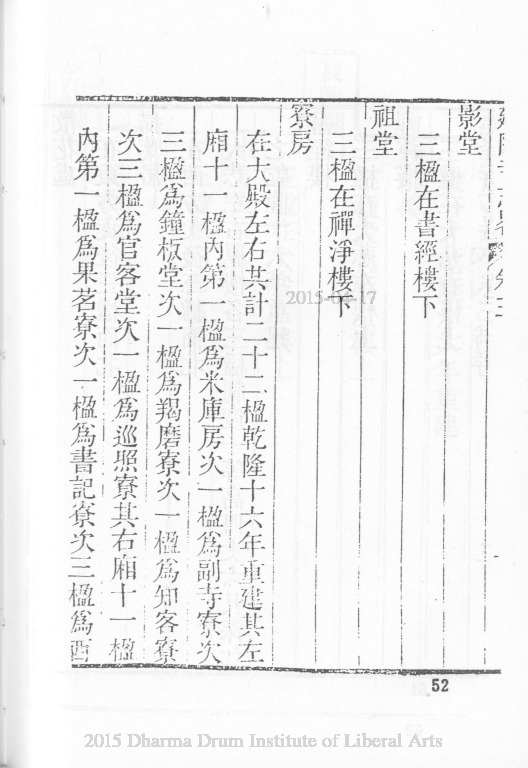 影堂
三楹在書經樓下
祖堂
三楹在禪淨樓下
寮房
在大殿左右共計二十二楹乾隆十六年重建其左
廂十一楹內第一楹爲米庫房次一楹爲副寺寮次
三楹爲鐘板堂次一楹爲羯磨寮次一楹爲知客寮
次三楹爲官客堂次一楹爲巡照寮其右廂十一楹
內第一楹爲果茗寮次一楹爲書記寮次三楹爲西
52
2015 Dharma Drum Institute of Liberal Arts